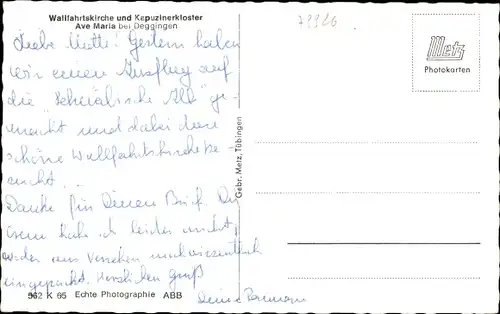 Wallfahrtskirche und Kapuzinerkloster
Ave Maria bei Deggingen
Liebe Gestern haben
wir einen Ausflug auf
die "Schwäbische Alb" ge-
macht und dabei diese
schöne Wallfahrtskirche be-
sucht.
Danke für Deinen Brief.
habe ich leider nicht,
aus Versehen
eingepackt. Herzlichen Gruß
Deine
562 K 65 Echte Photographie ABB
Gebr. Metz, Tübingen
Metz
Photokarten